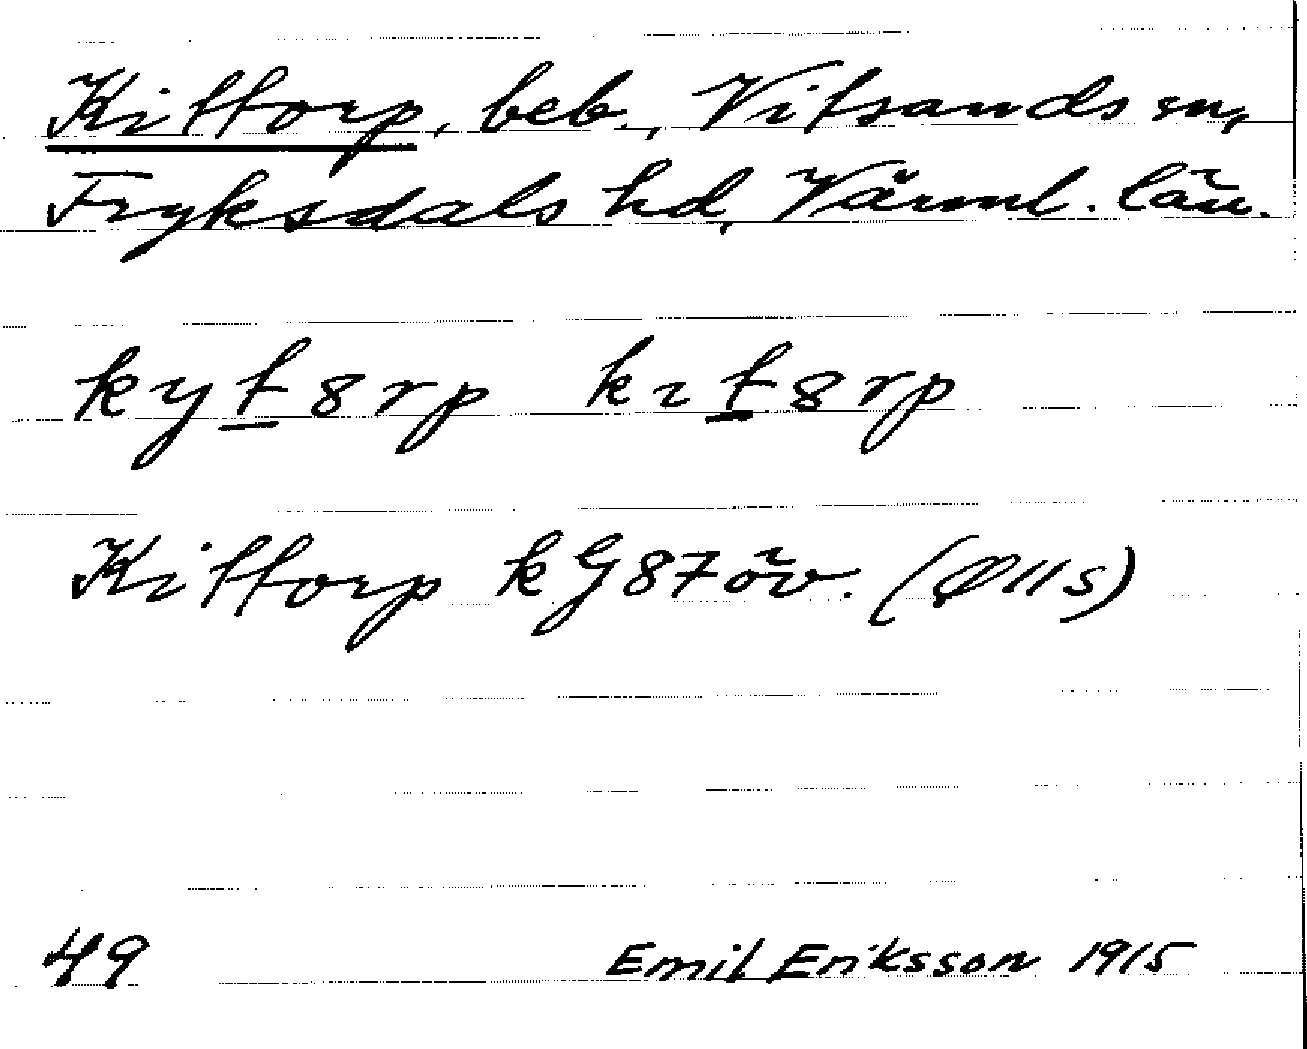 Kittorp, beb., Vitsands sn,
Fryksdals hd, Värml. län.
kyt8rp kɩt8rp
Kittorp kG87öv. (Ø11s)
49 Emil Eriksson 1915